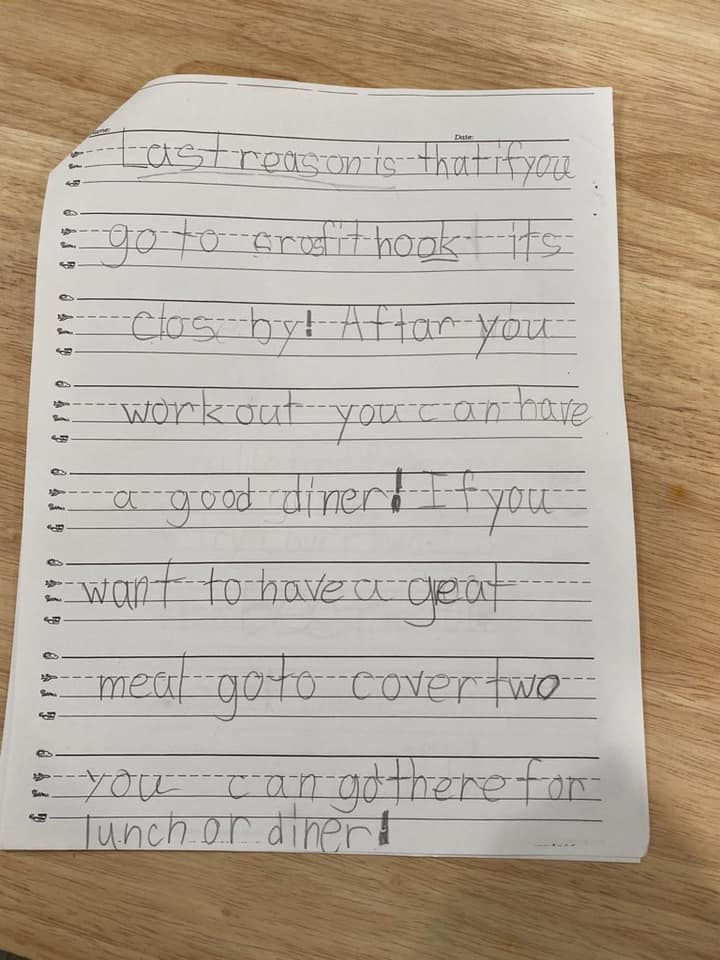 Date:
Last reason is that if you
go to crosfit hook its
clos by! Aftar you
workout you can have
a good diner! If you
want to have a great
meal go to cover two
you can go there for
lunch or diner!